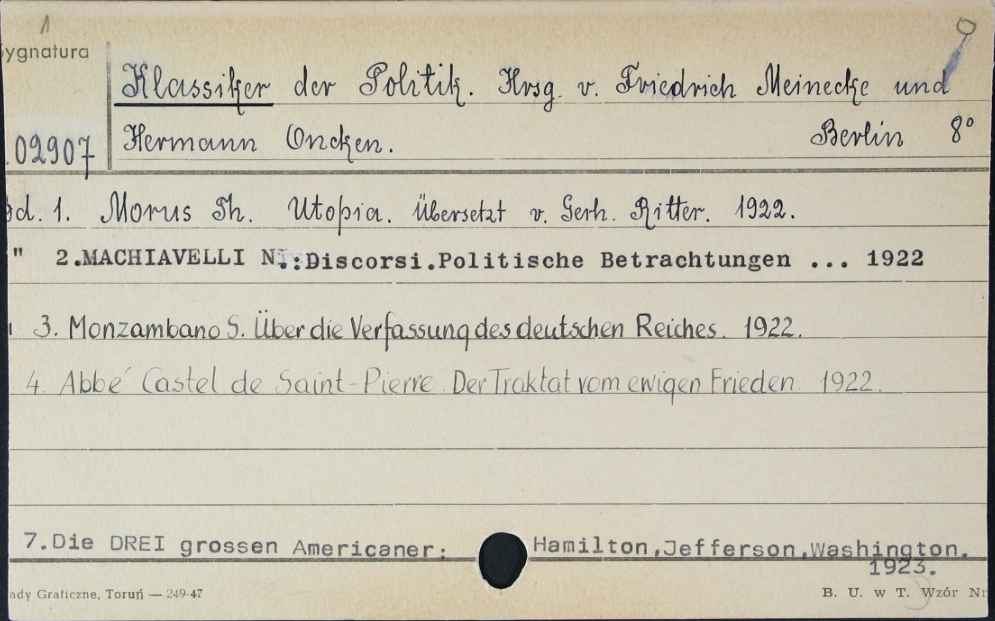 1
Sygnatura
Klassiker der Politik. Hrsg. v. Friedrich Meinecke und
02907 Hermann Oncken. Berlin 8°
Bd. 1. Morus Th. Utopia. Übersetzt v. Gerh. Ritter. 1922.
" 2.MACHIAVELLI N.:Discorsi.Politische Betrachtungen ... 1922
" 3. Monzambano S. Über die Verfassung des deutschen Reiches. 1922.
4. Abbé Castel de Saint-Pierre. Der Traktat vom ewigen Frieden. 1922.
7.Die DREI grossen Americaner: Hamilton,Jefferson,Washington.
1923.
ady Graficzne, Toruń — 249-47 B. U. w T. Wzór Nr